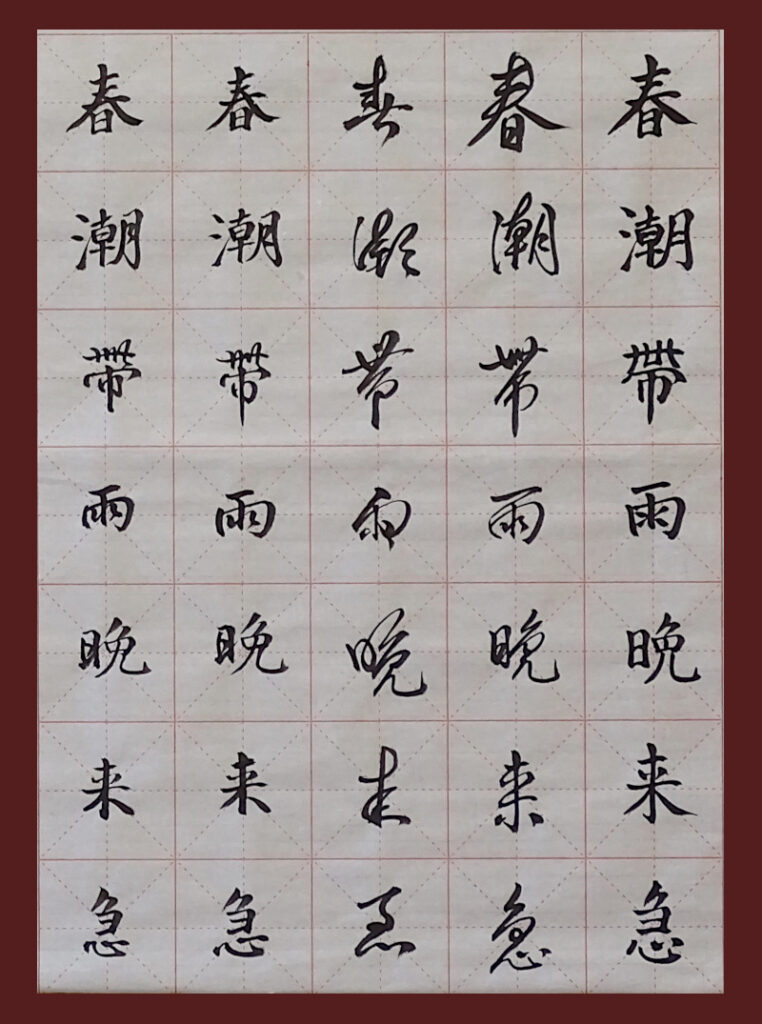 春潮帶雨晚来急
春潮帶雨晚来急
春潮帶雨晚来急
春潮帶雨晚来急
春潮帶雨晚来急